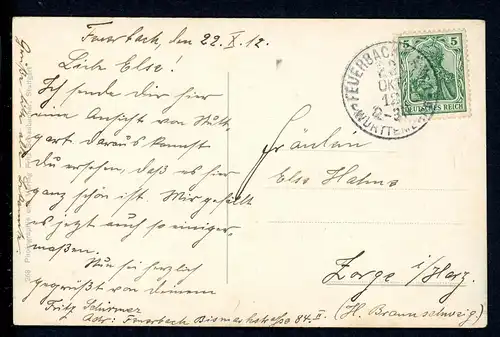 Feuerbach, den 22. X. 12.
Liebe Else!
Ich sende dir hier
eine Ansicht von Stutt-
gart daraus kannst
du ersehen, daß es hier
ganz schön ist. Mir gefällt
es jetzt auch so einiger-
maßen.
Nun sei herzlich
gegrüßt von deinem
Fritz Schirmer
Adr: Feuerbach Bismarckstraße 84. II
Fräulein
Else Hahne
Zorge i/Harz.
(H. Braunschweig)
FEUERBACH
22
OKT
12
WÜRTTEMB.
5 5
DEUTSCHES REICH